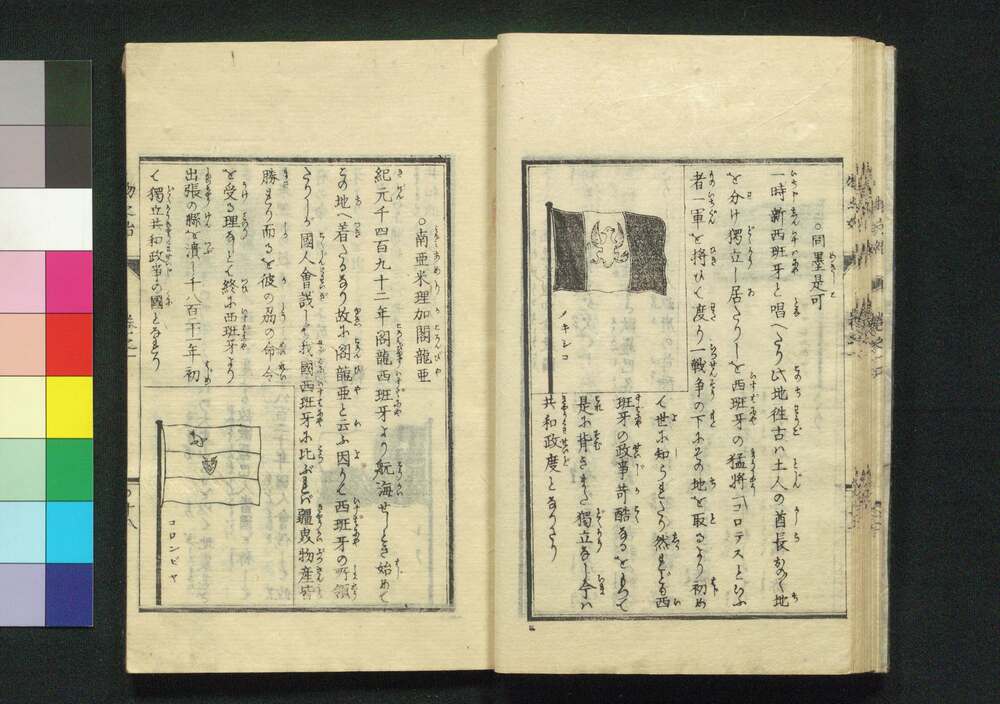 ○同墨是可
一時新西班牙と唱へたり此地往古ハ土人の酋長ありて地
を分け独立し居たりしを西班牙の猛将コロテスといふ
者一軍を将ひて度り一戦争の下にその地を取るより初め
て世に知られたり然れども西
班牙の政事苛酷なるをもつて
是に背きまた独立なし今ハ
共和政度となりたり
メキシコ
○南亜米理加閣龍亜
紀元千四百九十二年閣龍西班牙より航海せしとき始めて
この地へ着たるなり故に閣龍亜と云ふ因りて西班牙の所領
たりしが國人會議して我國西班牙に比ぶれば疆域物産皆
勝れり而るを彼の苛の命令
を受る理なしとて終に西班牙より
出張の縣を潰し千八百十一年初
て獨立共和政事の國となれり
コロンビヤ